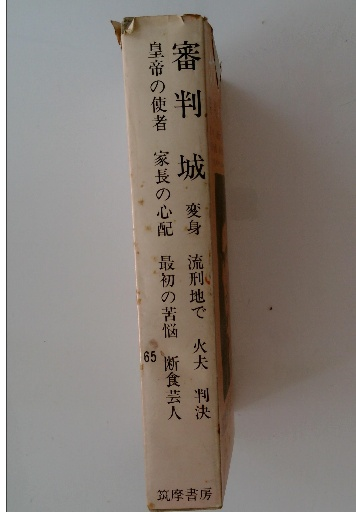 審判 城 変身 流刑地で 火夫 判決
皇帝の使者 家長の心配 最初の苦悩 断食芸人
65
筑摩書房